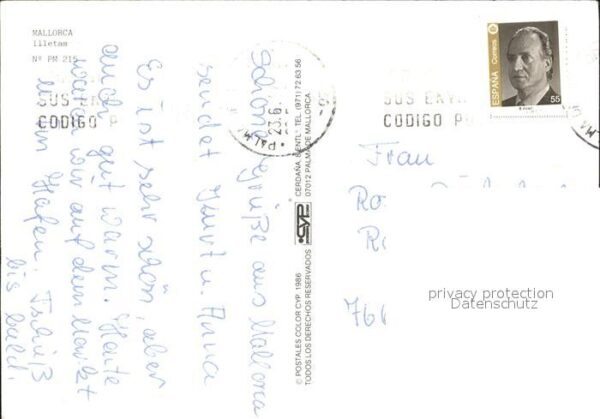 MALLORCA
illetas
Nº PM 215
SUS ENV
CODIGO P
PALM
SUS ENV
CODIGO P
ESPAÑA Correos
55
Schöne Grüße aus Mallorca
sendet Kurt u. Anna
Es ist sehr schön, aber
auch gut warm. Heute
waren wir auf dem Markt
und im Hafen. Tschüß
bis bald.
Frau
Ro
Ri
766
privacy protection
Datenschutz
© POSTALES COLOR CYP, 1986
TODOS LOS DERECHOS RESERVADOS
CYP
CERDAÑA, 8 ENTL. TEL (971) 72 63 56
07012 PALMA DE MALLORCA